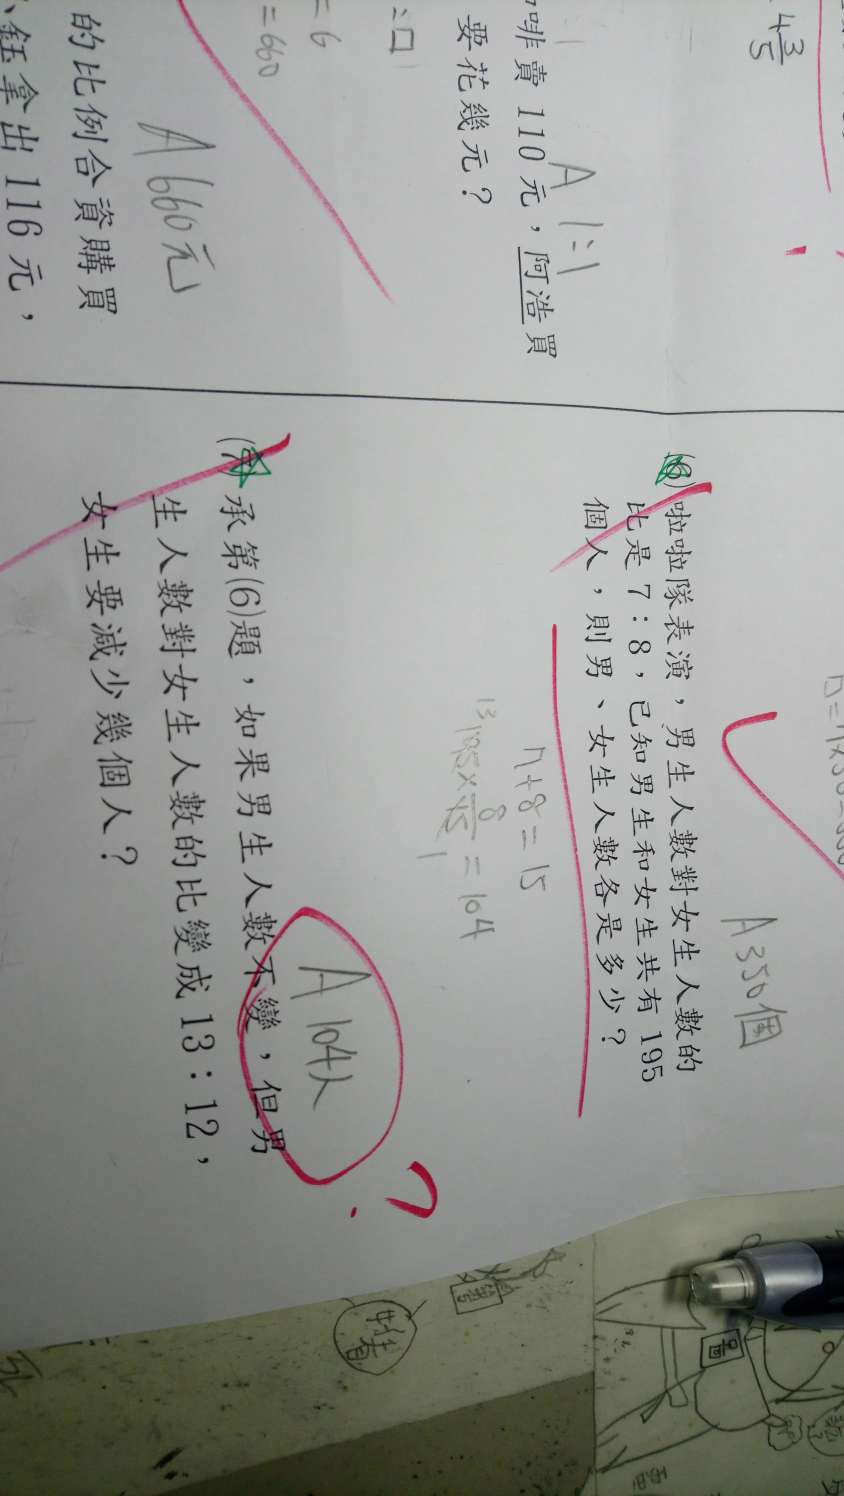 4 3/5
啡賣110元，阿浩買
要花幾元？
A 1:1
:□
=6
=660
A 660元
的比例合資購買
鈺拿出116元，
A 350個
(6) 啦啦隊表演，男生人數對女生人數的
比是 7：8，已知男生和女生共有 195
個人，則男、女生人數各是多少？
7+8=15
13
195×8/15=104
1
A 104人
?
(7) 承第(6)題，如果男生人數不變，但男
生人數對女生人數的比變成 13：12，
女生要減少幾個人？